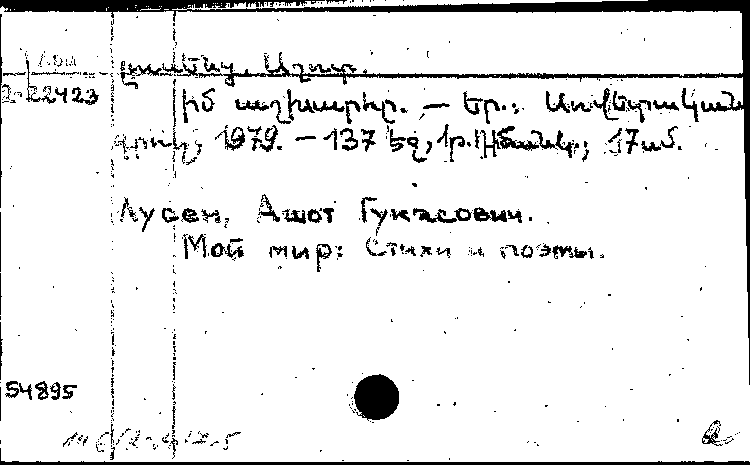 Լուսենց. Աշոտ.
2-22423
Իմ աշխարհը. — Եր.: Սովետական
գրող, 1979. — 137 էջ, 1թ. դիմանկ.; 17սմ.
Лусен, Ашот Гукасович.
Мой мир: Стихи и поэты.
54895